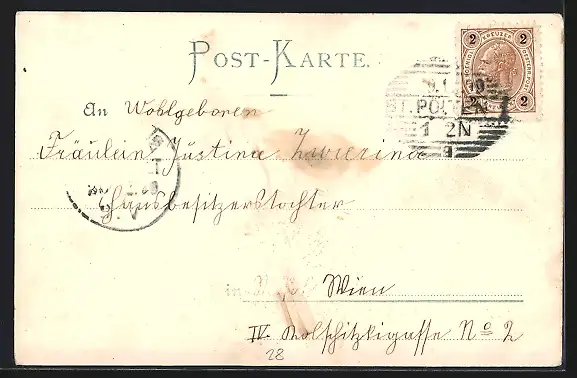 POST-KARTE.
2 KREUZER 2
2 2
An Wohlgeboren
ST. PÖLTEN 1
1 2N
Fräulein Justina Zwierina
Hausbesitzerstochter
in Wien
IV. Kolschitzkigasse No 2
28